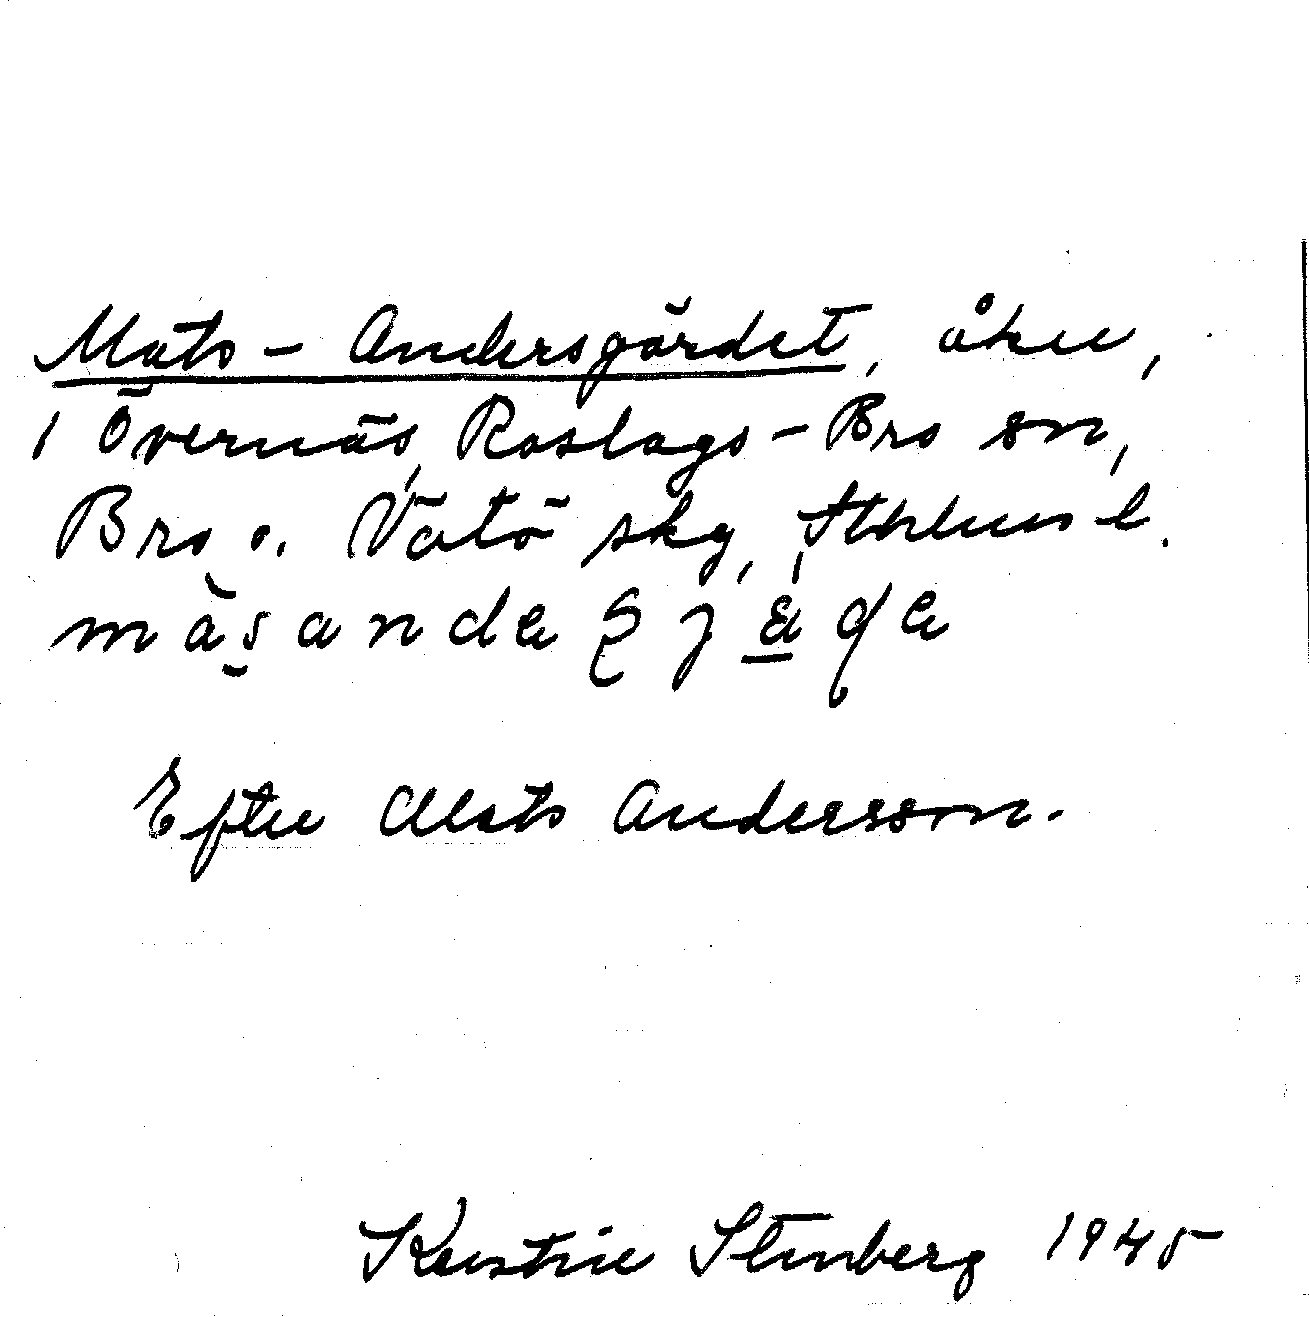 Mats-Andersgärdet, åker,
i Övernäs, Roslags-Bro sn,
Bro o. Vätö sky, Sthlms l.
Efter Mats Andersson.
Kerstin Stenberg 1945